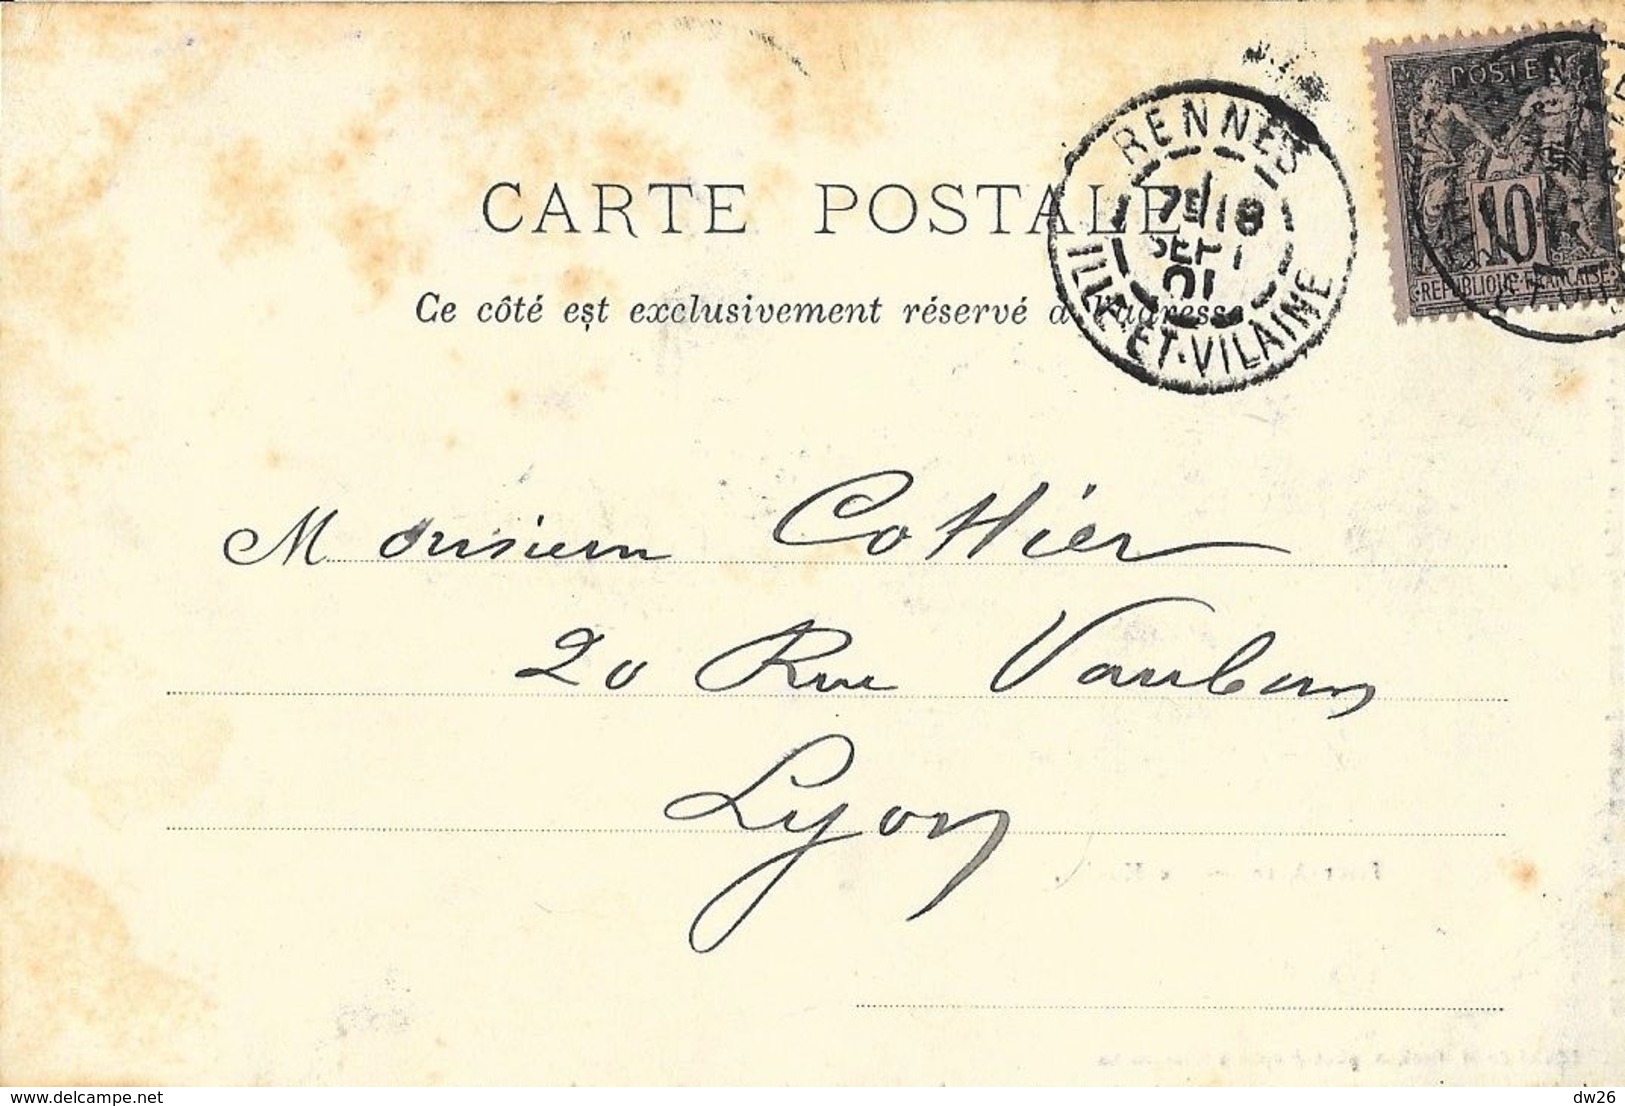 POSTE
10
REPUBLIQUE FRANÇAISE
RENNES
7E 18
SEPT
01
ILLE-ET-VILAINE
CARTE POSTALE
Ce côté est exclusivement réservé à l'adresse
Monsieur Cottier
20 Rue Vauban
Lyon
delcampe.net
dw26